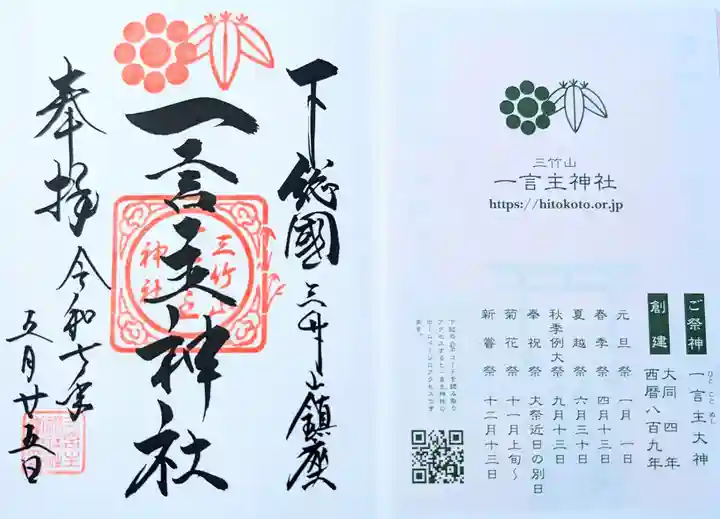 下総國三竹山鎮座
一言主神社
三竹山
神社
奉拝
令和七年
五月廿五日
三竹山
一言主神社
https://hitokoto.or.jp
ご祭神
一言主大神
ひとことぬし
創建
大同四年
西暦八百九年
元旦祭 一月一日
春季祭 四月十三日
夏越祭 六月三十日
秋季例大祭 九月十三日
奉祝祭 大祭近日の別日
菊花祭 十一月上旬～
新嘗祭 十二月十三日